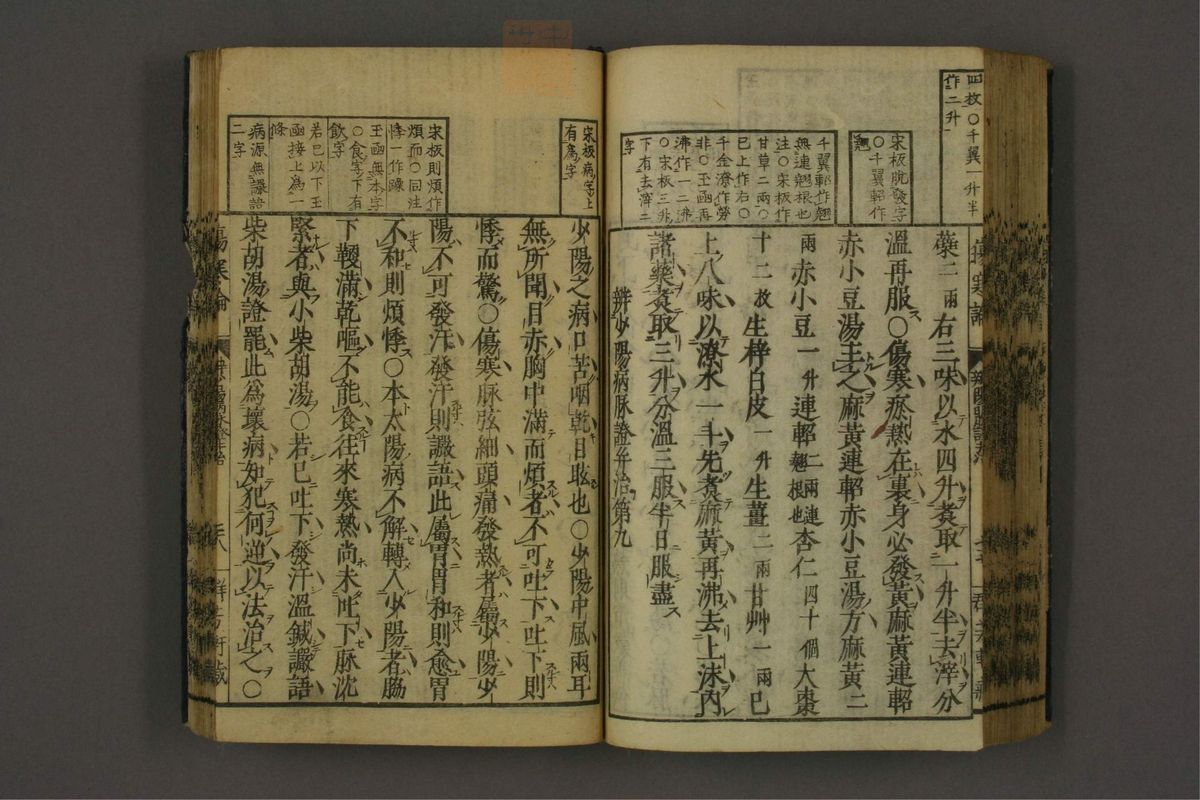 四枚○千翼一升半
作二升
宋板脱發字
○千翼軺作
翹
千翼軺作翹
無連翹根也
注○宋板作
甘草二兩○
已上作右○
千金潦作勞
非○玉函再
沸作一二沸
○宋板三升
下有去滓二
字
蘗二兩右三味以水四升煮取一升半去滓分
溫再服○傷寒瘀熱在裏身必發黃麻黃連軺
赤小豆湯主之麻黃連軺赤小豆湯方麻黃二
兩赤小豆一升連軺二兩連翹根也杏仁四十個大棗
十二枚生梓白皮一升生薑二兩甘艸一兩已
上八味以潦水一斗先煮麻黃再沸去上沫內
諸藥煮取三升分溫三服半日服盡
辨少陽病脉證并治第九
宋板病字上
有爲字
宋板則煩作
煩而○同注
悸一作躁
玉函無本字
○食字下有
飲字
若已以下玉
函接上爲一
條
病源無譫語
二字
少陽之病口苦咽乾目眩也○少陽中風兩耳
無所聞目赤胸中滿而煩者不可吐下吐下則
悸而驚○傷寒脉弦細頭痛發熱者屬少陽少
陽不可發汗發汗則譫語此屬胃胃和則愈胃
不和則煩悸○本太陽病不解轉入少陽者脇
下鞕滿乾嘔不能食往來寒熱尚未吐下脉沈
緊者與小柴胡湯○若已吐下發汗溫鍼譫語
柴胡湯證罷此爲壞病知犯何逆以法治之○
傷寒論